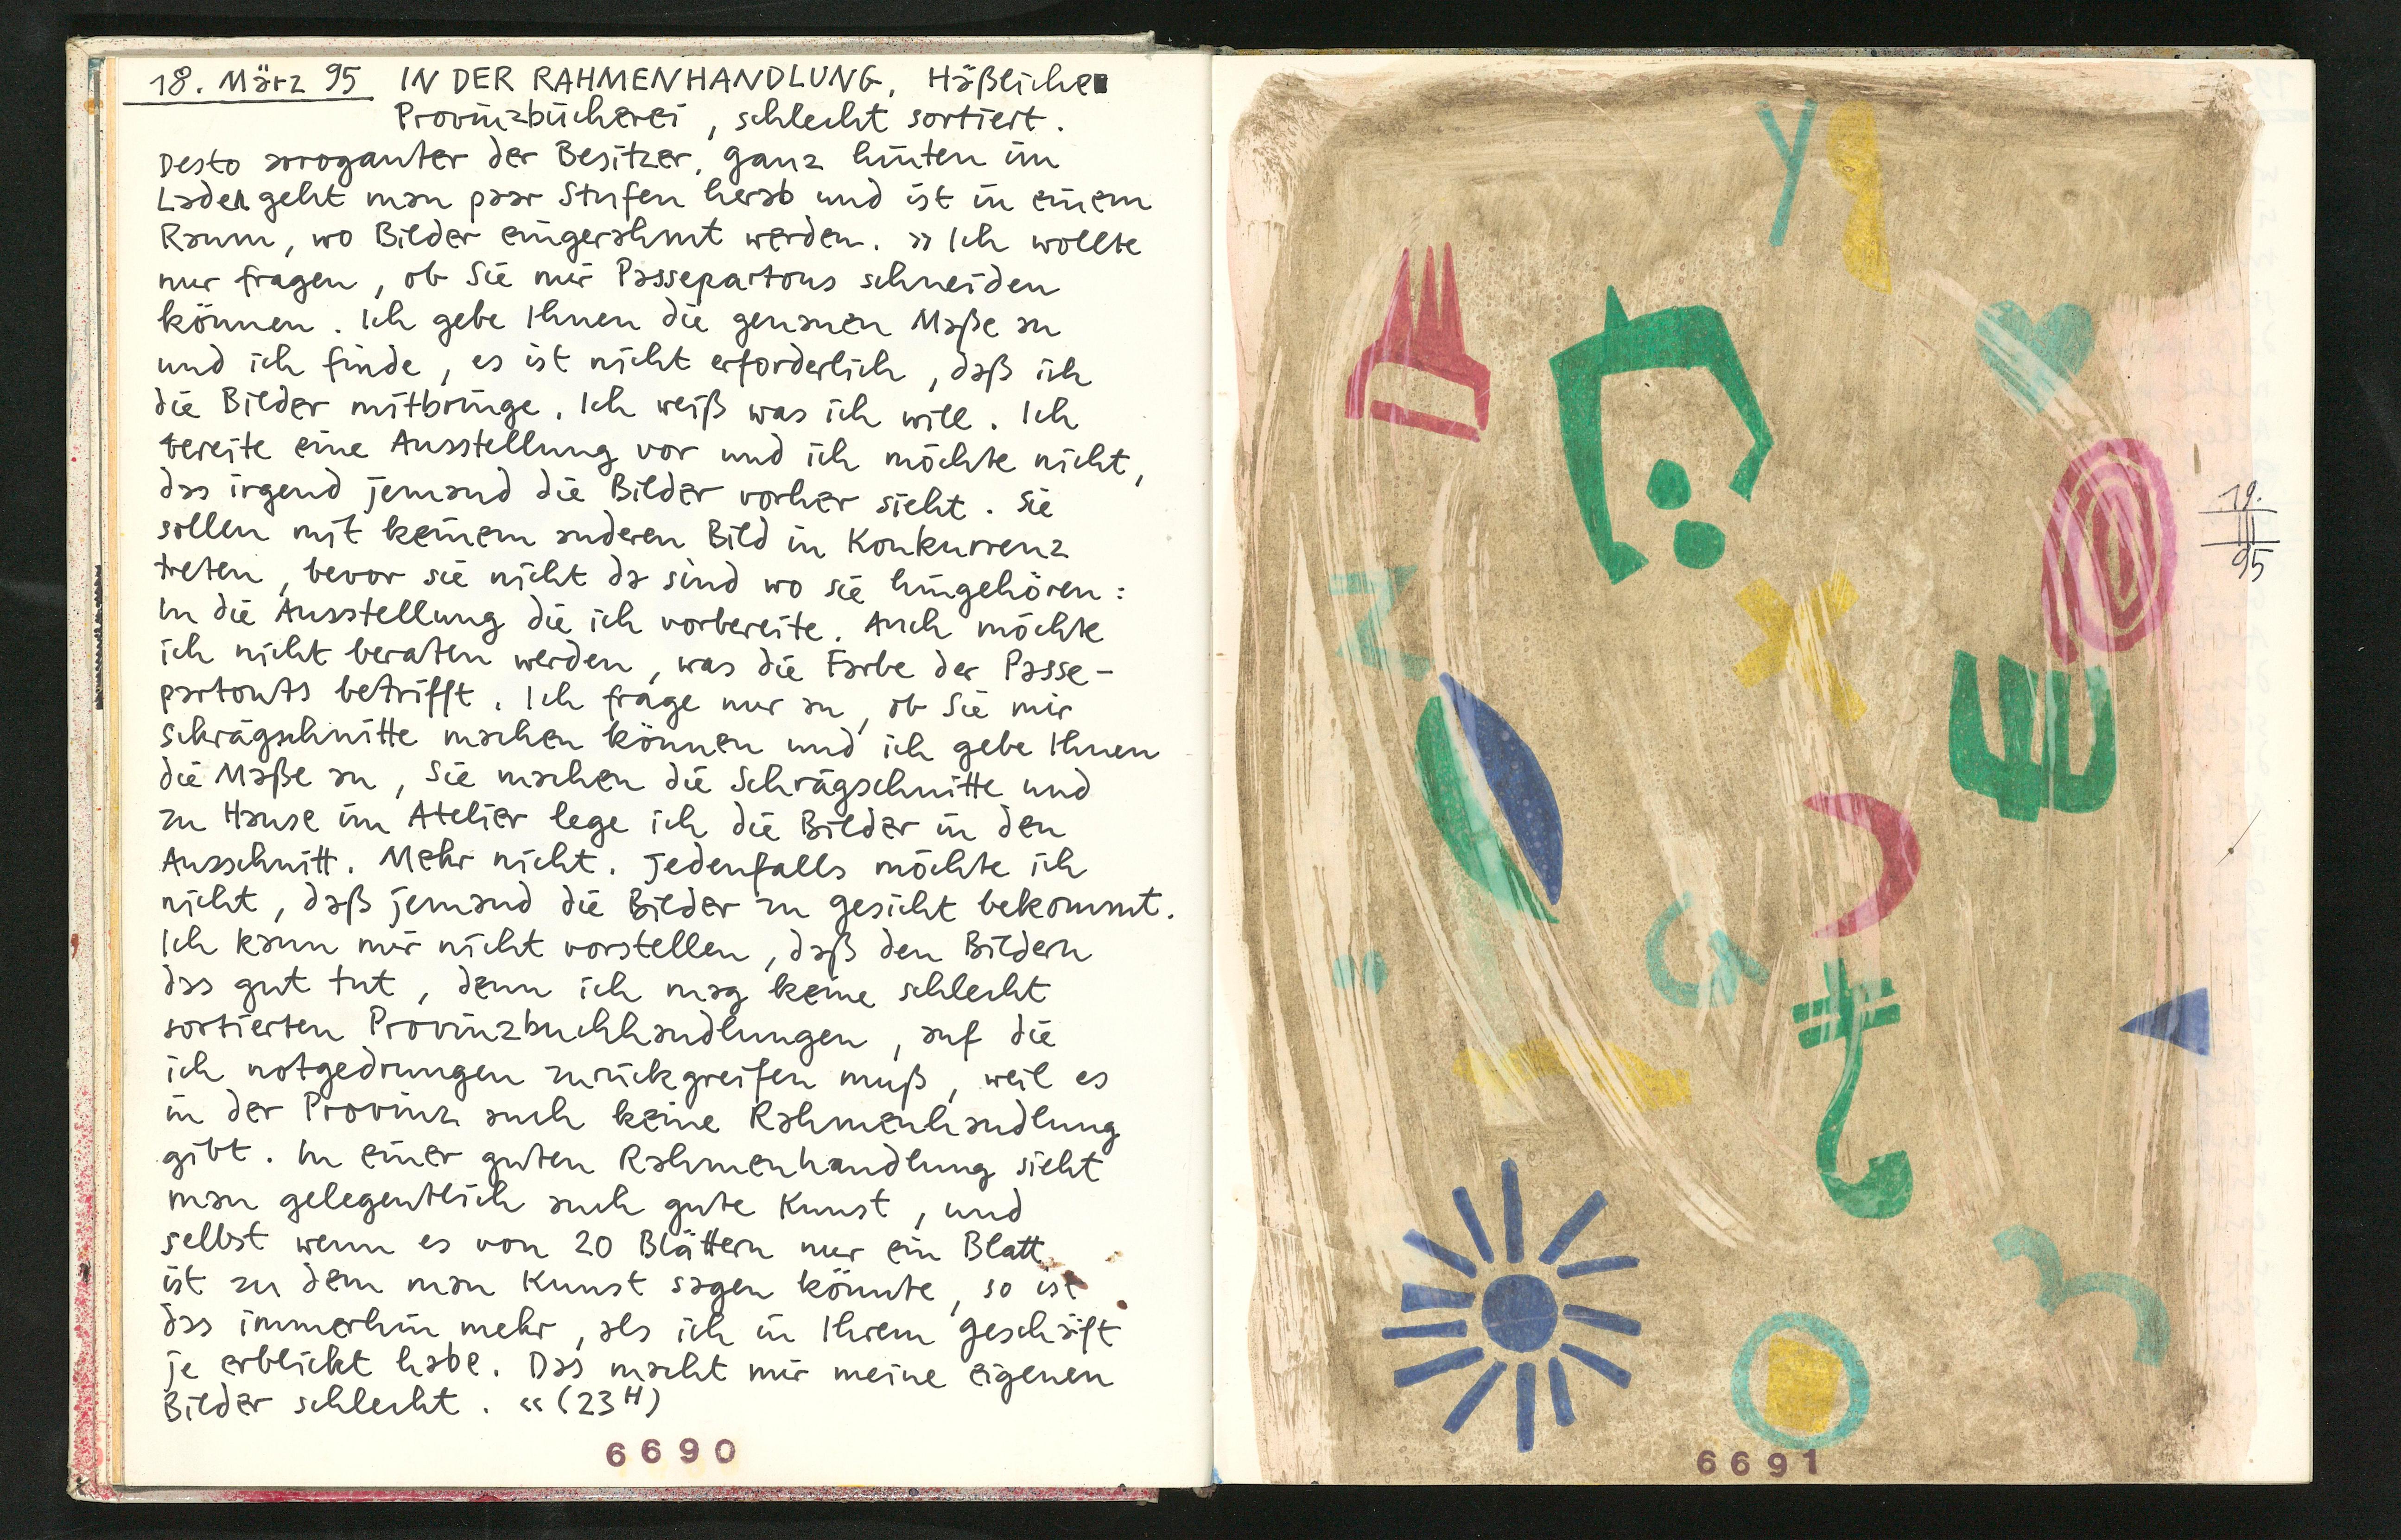 18. März 95 IN DER RAHMENHANDLUNG, Häßliche
Provinzbücherei, schlecht sortiert.
Desto arroganter der Besitzer, ganz hinten im
Laden geht man paar Stufen herab und ist in einem
Raum, wo Bilder eingerahmt werden. »Ich wollte
nur fragen, ob Sie mir Passepartous schneiden
können. Ich gebe Ihnen die genauen Maße an
und ich finde, es ist nicht erforderlich, daß ich
die Bilder mitbringe. Ich weiß was ich will. Ich
bereite eine Ausstellung vor und ich möchte nicht,
das irgend jemand die Bilder vorher sieht. Sie
sollen mit keinem anderen Bild in Konkurrenz
treten, bevor sie nicht da sind wo sie hingehören:
In die Ausstellung die ich vorbereite. Auch möchte
ich nicht beraten werden, was die Farbe der Passe-
partouts betrifft. Ich frage nur an, ob Sie mir
Schrägschnitte machen können und ich gebe Ihnen
die Maße an, Sie machen die Schrägschnitte und
zu Hause im Atelier lege ich die Bilder in den
Ausschnitt. Mehr nicht. Jedenfalls möchte ich
nicht, daß jemand die Bilder zu gesicht bekommt.
Ich kann mir nicht vorstellen, daß den Bildern
das gut tut, denn ich mag keine schlecht
sortierten Provinzbuchhandlungen, auf die
ich notgedrungen zurückgreifen muß, weil es
in der Provinz auch keine Rahmenhandlung
gibt. In einer guten Rahmenhandlung sieht
man gelegentlich auch gute Kunst, und
selbst wenn es von 20 Blättern nur ein Blatt
ist zu dem man Kunst sagen könnte, so ist
das immerhin mehr, als ich in Ihrem geschäft
je erblickt habe. Das macht mir meine eigenen
Bilder schlecht. « (23 H)
6690
19.
III
95
6691